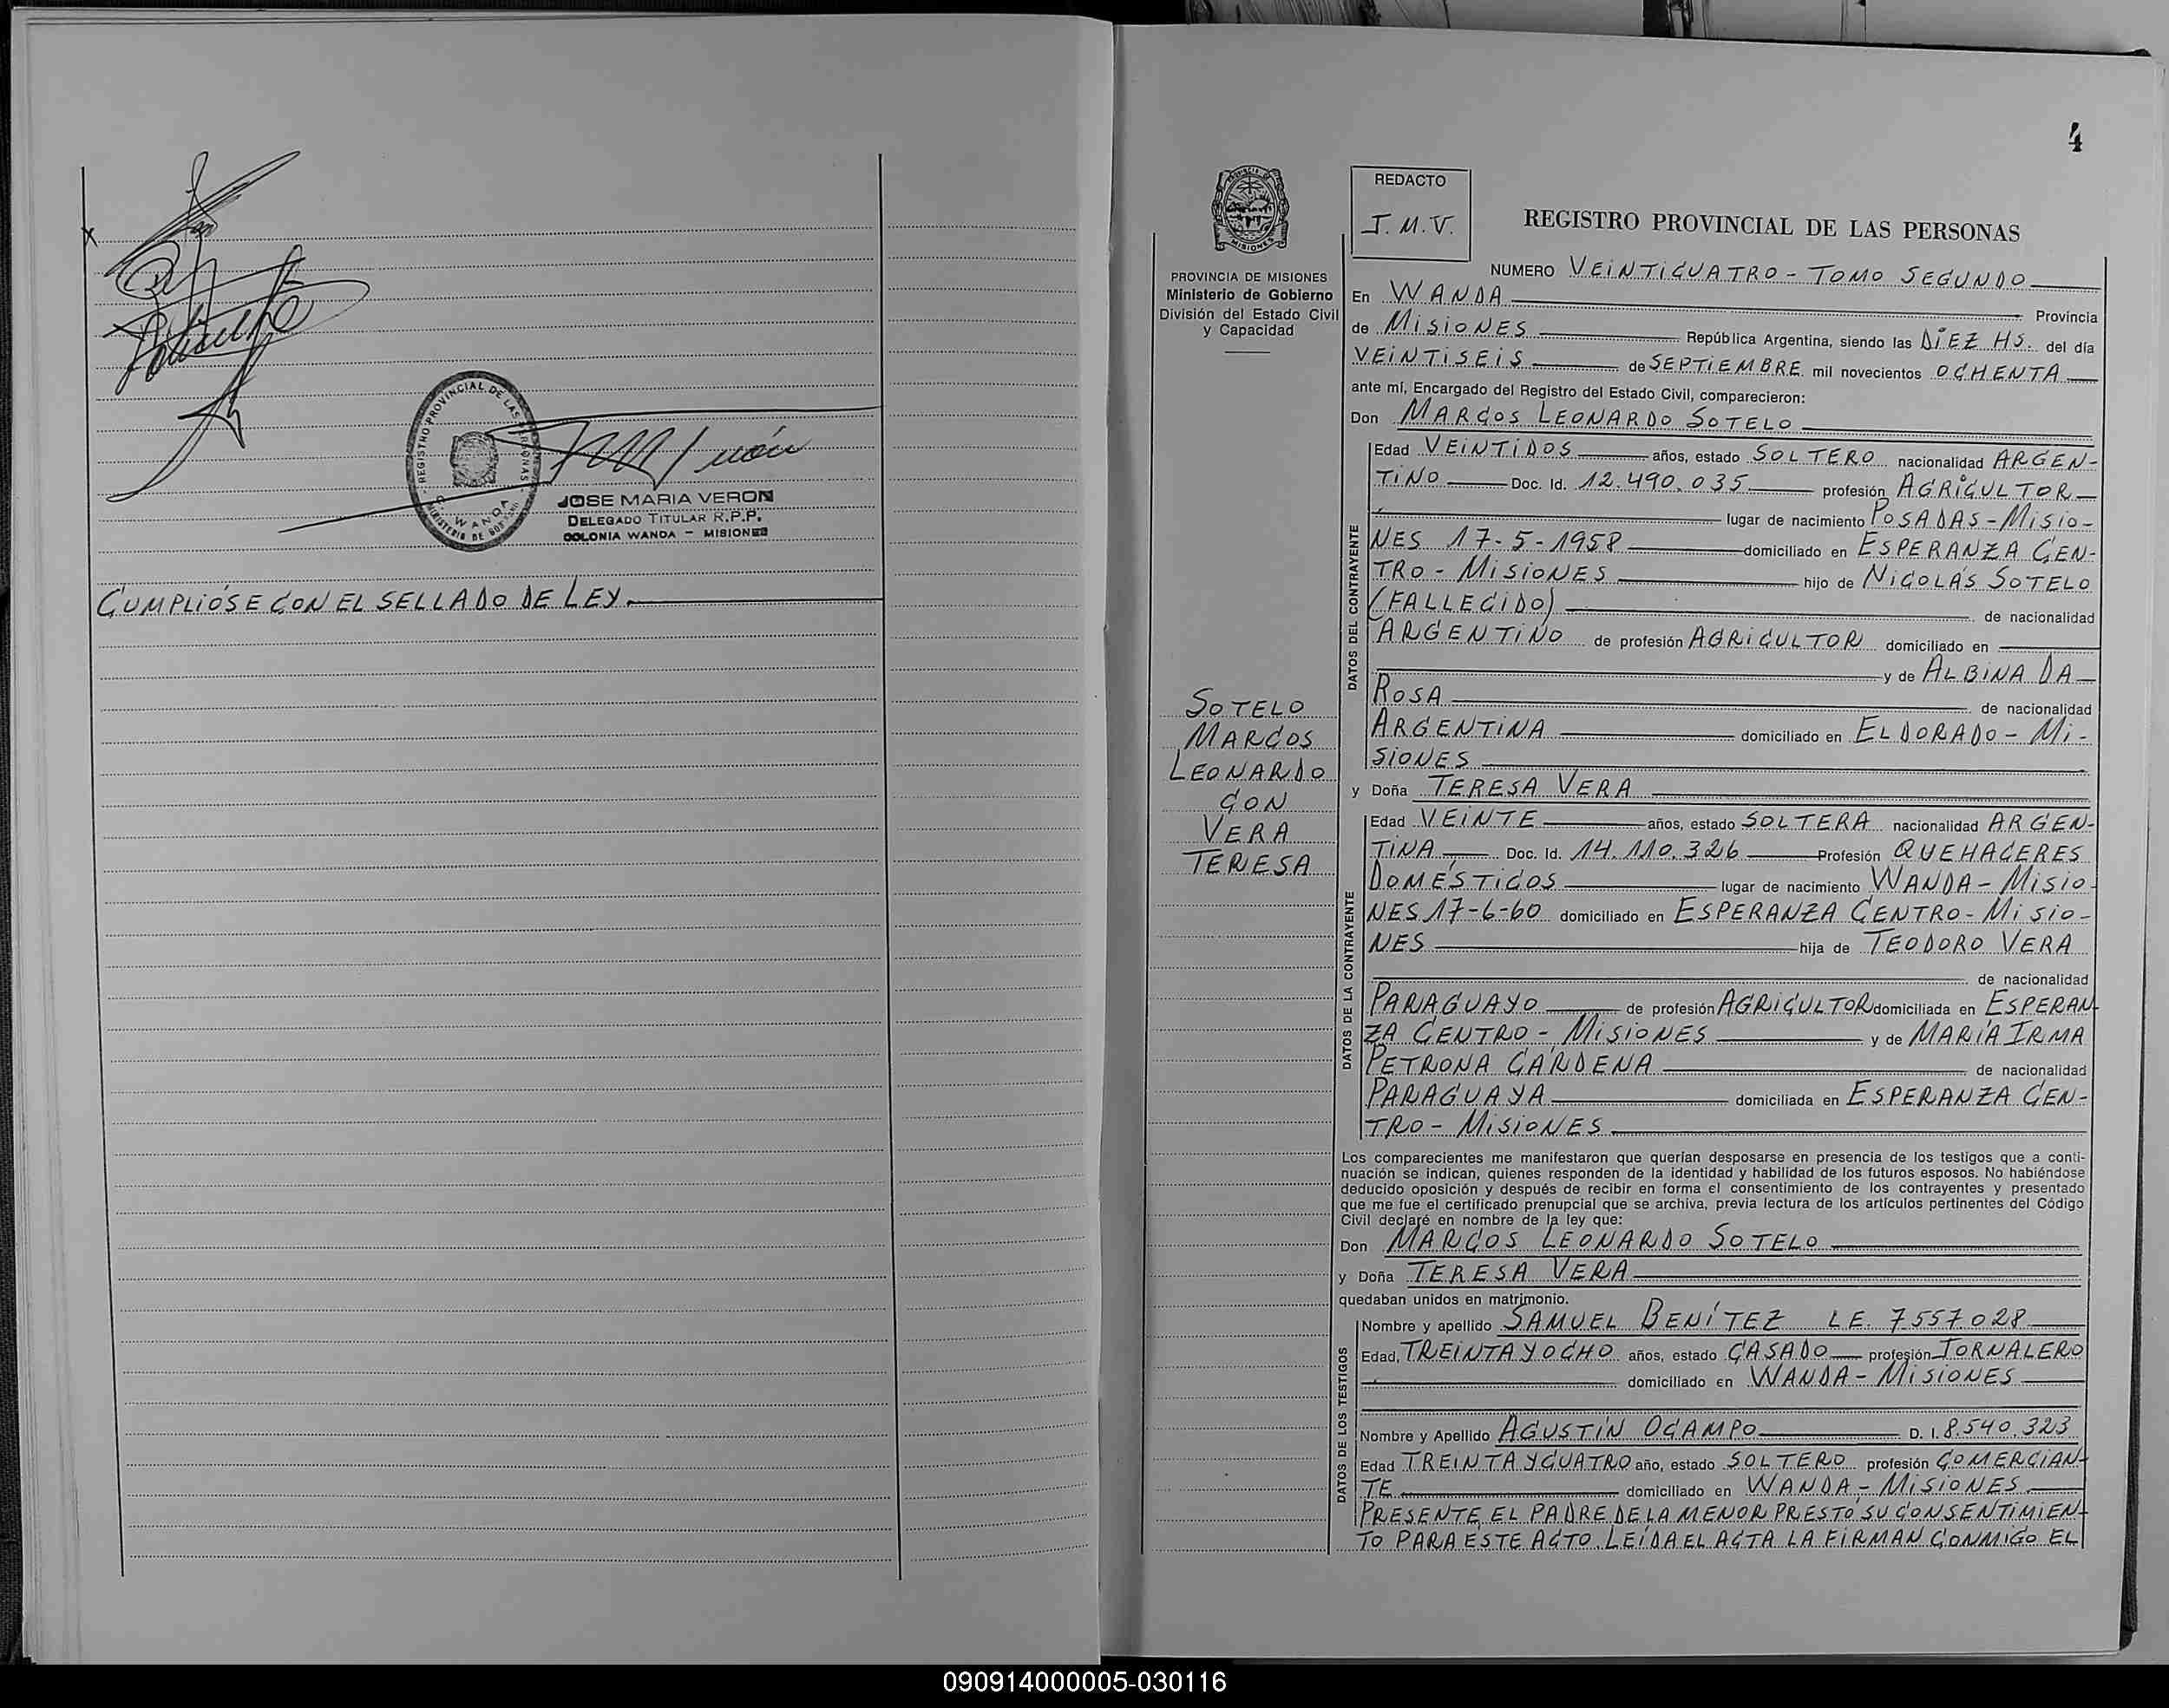 REGISTRO PROVINCIAL DE LAS PERSONAS
MINISTERIO DE GOBIERNO
WANDA
JOSE MARIA VERON
DELEGADO TITULAR R.P.P.
COLONIA WANDA - MISIONES
CUMPLIÓSE CON EL SELLADO DE LEY.
4
PROVINCIA DE MISIONES
Ministerio de Gobierno
División del Estado Civil
y Capacidad
SOTELO
MARCOS
LEONARDO
CON
VERA
TERESA
REDACTO
J. M. V.
REGISTRO PROVINCIAL DE LAS PERSONAS
NUMERO VEINTICUATRO - TOMO SEGUNDO
En WANDA Provincia
de MISIONES República Argentina, siendo las DIEZ HS. del día
VEINTISEIS de SEPTIEMBRE mil novecientos OCHENTA
ante mí, Encargado del Registro del Estado Civil, comparecieron:
Don MARCOS LEONARDO SOTELO
DATOS DEL CONTRAYENTE
Edad VEINTIDOS años, estado SOLTERO nacionalidad ARGEN-
TINO Doc. Id. 12.490.035 profesión AGRICULTOR
lugar de nacimiento POSADAS - MISIO-
NES 17-5-1958 domiciliado en ESPERANZA CEN-
TRO - MISIONES hijo de NICOLÁS SOTELO
(FALLECIDO) de nacionalidad
ARGENTINO de profesión AGRICULTOR domiciliado en
y de ALBINA DA
ROSA de nacionalidad
ARGENTINA domiciliado en ELDORADO - MI-
SIONES
y Doña TERESA VERA
DATOS DE LA CONTRAYENTE
Edad VEINTE años, estado SOLTERA nacionalidad ARGEN-
TINA Doc. Id. 14.110.326 Profesión QUEHACERES
DOMÉSTICOS lugar de nacimiento WANDA - MISIO-
NES 17-6-60 domiciliado en ESPERANZA CENTRO - MISIO-
NES hija de TEODORO VERA
de nacionalidad
PARAGUAYO de profesión AGRICULTOR domiciliada en ESPERAN-
ZA CENTRO - MISIONES y de MARÍA IRMA
PETRONA CARDENA de nacionalidad
PARAGUAYA domiciliada en ESPERANZA CEN-
TRO - MISIONES
Los comparecientes me manifestaron que querían desposarse en presencia de los testigos que a conti-
nuación se indican, quienes responden de la identidad y habilidad de los futuros esposos. No habiéndose
deducido oposición y después de recibir en forma el consentimiento de los contrayentes y presentado
que me fue el certificado prenupcial que se archiva, previa lectura de los artículos pertinentes del Código
Civil declaré en nombre de la ley que:
Don MARCOS LEONARDO SOTELO
y Doña TERESA VERA
quedaban unidos en matrimonio.
DATOS DE LOS TESTIGOS
Nombre y apellido SAMUEL BENÍTEZ L E. 7.557.028
Edad, TREINTA Y OCHO años, estado CASADO profesión JORNALERO
domiciliado en WANDA - MISIONES
Nombre y Apellido AGUSTÍN OCAMPO D. I. 8.540.323
Edad TREINTA Y CUATRO año, estado SOLTERO profesión COMERCIAN-
TE domiciliado en WANDA - MISIONES.
PRESENTE EL PADRE DE LA MENOR PRESTÓ SU CONSENTIMIEN-
TO PARA ESTE ACTO. LEÍDA EL ACTA LA FIRMAN CONMIGO EL
090914000005-030116